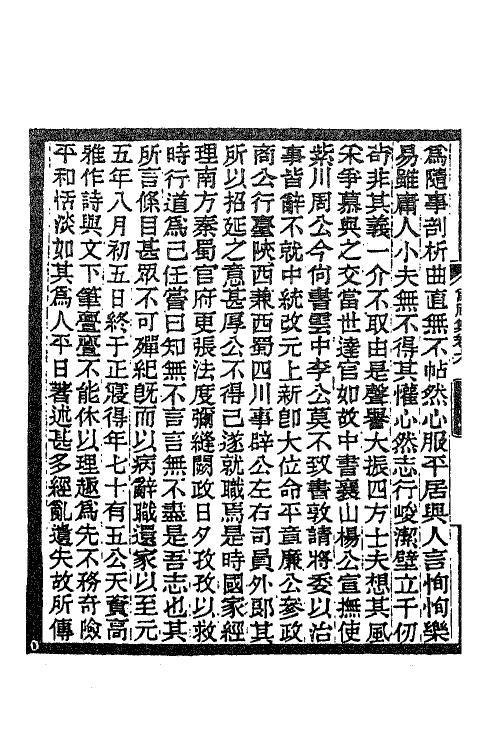 爲隨事剖析曲直無不帖然心服平居與人言恂恂樂
易雖庸人小夫無不得其懽心然志行峻潔壁立千仞
苟非其義一介不取由是聲譽大振四方士夫想其風
采爭慕與之交當世達官如故中書襄山楊公宣撫使
紫川周公今尙書雲中李公莫不致書敦請將委以治
事皆辭不就中統改元上新卽大位命平章廉公參政
商公行臺陝西兼西蜀四川事辟公左右司員外郞其
所以招延之意甚厚公不得已遂就職焉是時國家經
理南方秦蜀官府更張法度彌縫闕政日夕孜孜以救
時行道爲己任嘗曰知無不言言無不盡是吾志也其
所言條目甚眾不可殫紀旣而以病辭職還家以至元
五年八月初五日終于正寢得年七十有五公天資高
雅作詩與文下筆亹亹不能休以理趣爲先不務奇險
平和恬淡如其爲人平日著述甚多經亂遺失故所傳